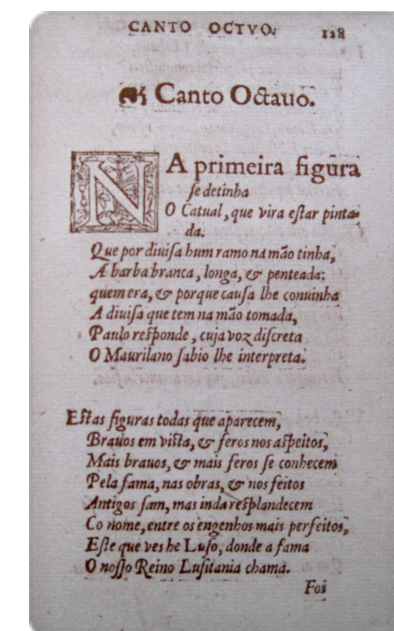 CANTO OCTVO.
128
Canto Octauo.
NA primeira figura
se detinha
O Catual, que vira eſtar pinta-
da.
Que por diuiſa hum ramo na mão tinha,
A barba branca, longa, & penteada:
quem era, & porque cauſa lhe conuinha
A diuiſa que tem na mão tomada,
Paulo reſponde, cuja voz diſcreta
O Maurilano ſabio lhe interpreta.
Eſtas figuras todas que aparecem,
Brauos em viſta, & feros nos aſpeitos,
Mais brauos, & mais feros ſe conhecem
Pela fama, nas obras, & nos feitos
Antigos ſam, mas inda reſplandecem
Co nome, entre os engenhos mais perfeitos,
Eſte que ves he Luſo, donde a fama
O noſſo Reino Luſitania chama.
Foi